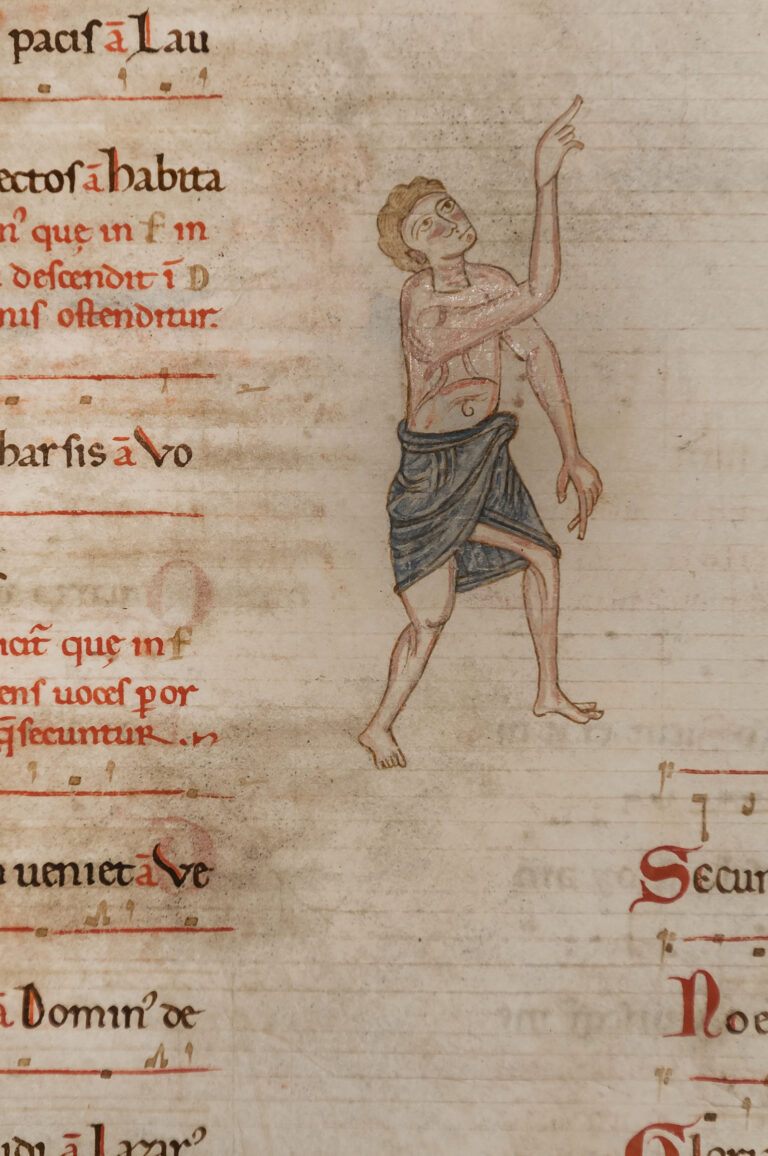 pacis ā Lau
ectos ā habita
n᾽ quę in F in
descendit ī D
nis ostenditur.
harsis ā Vo
icit̄ quę in F
ens uoces ꝑor
q̄ secuntur
ueniet ā Ve
ā Domin᾽ de
ā Lazar᾽
Secun
Noe
Glori